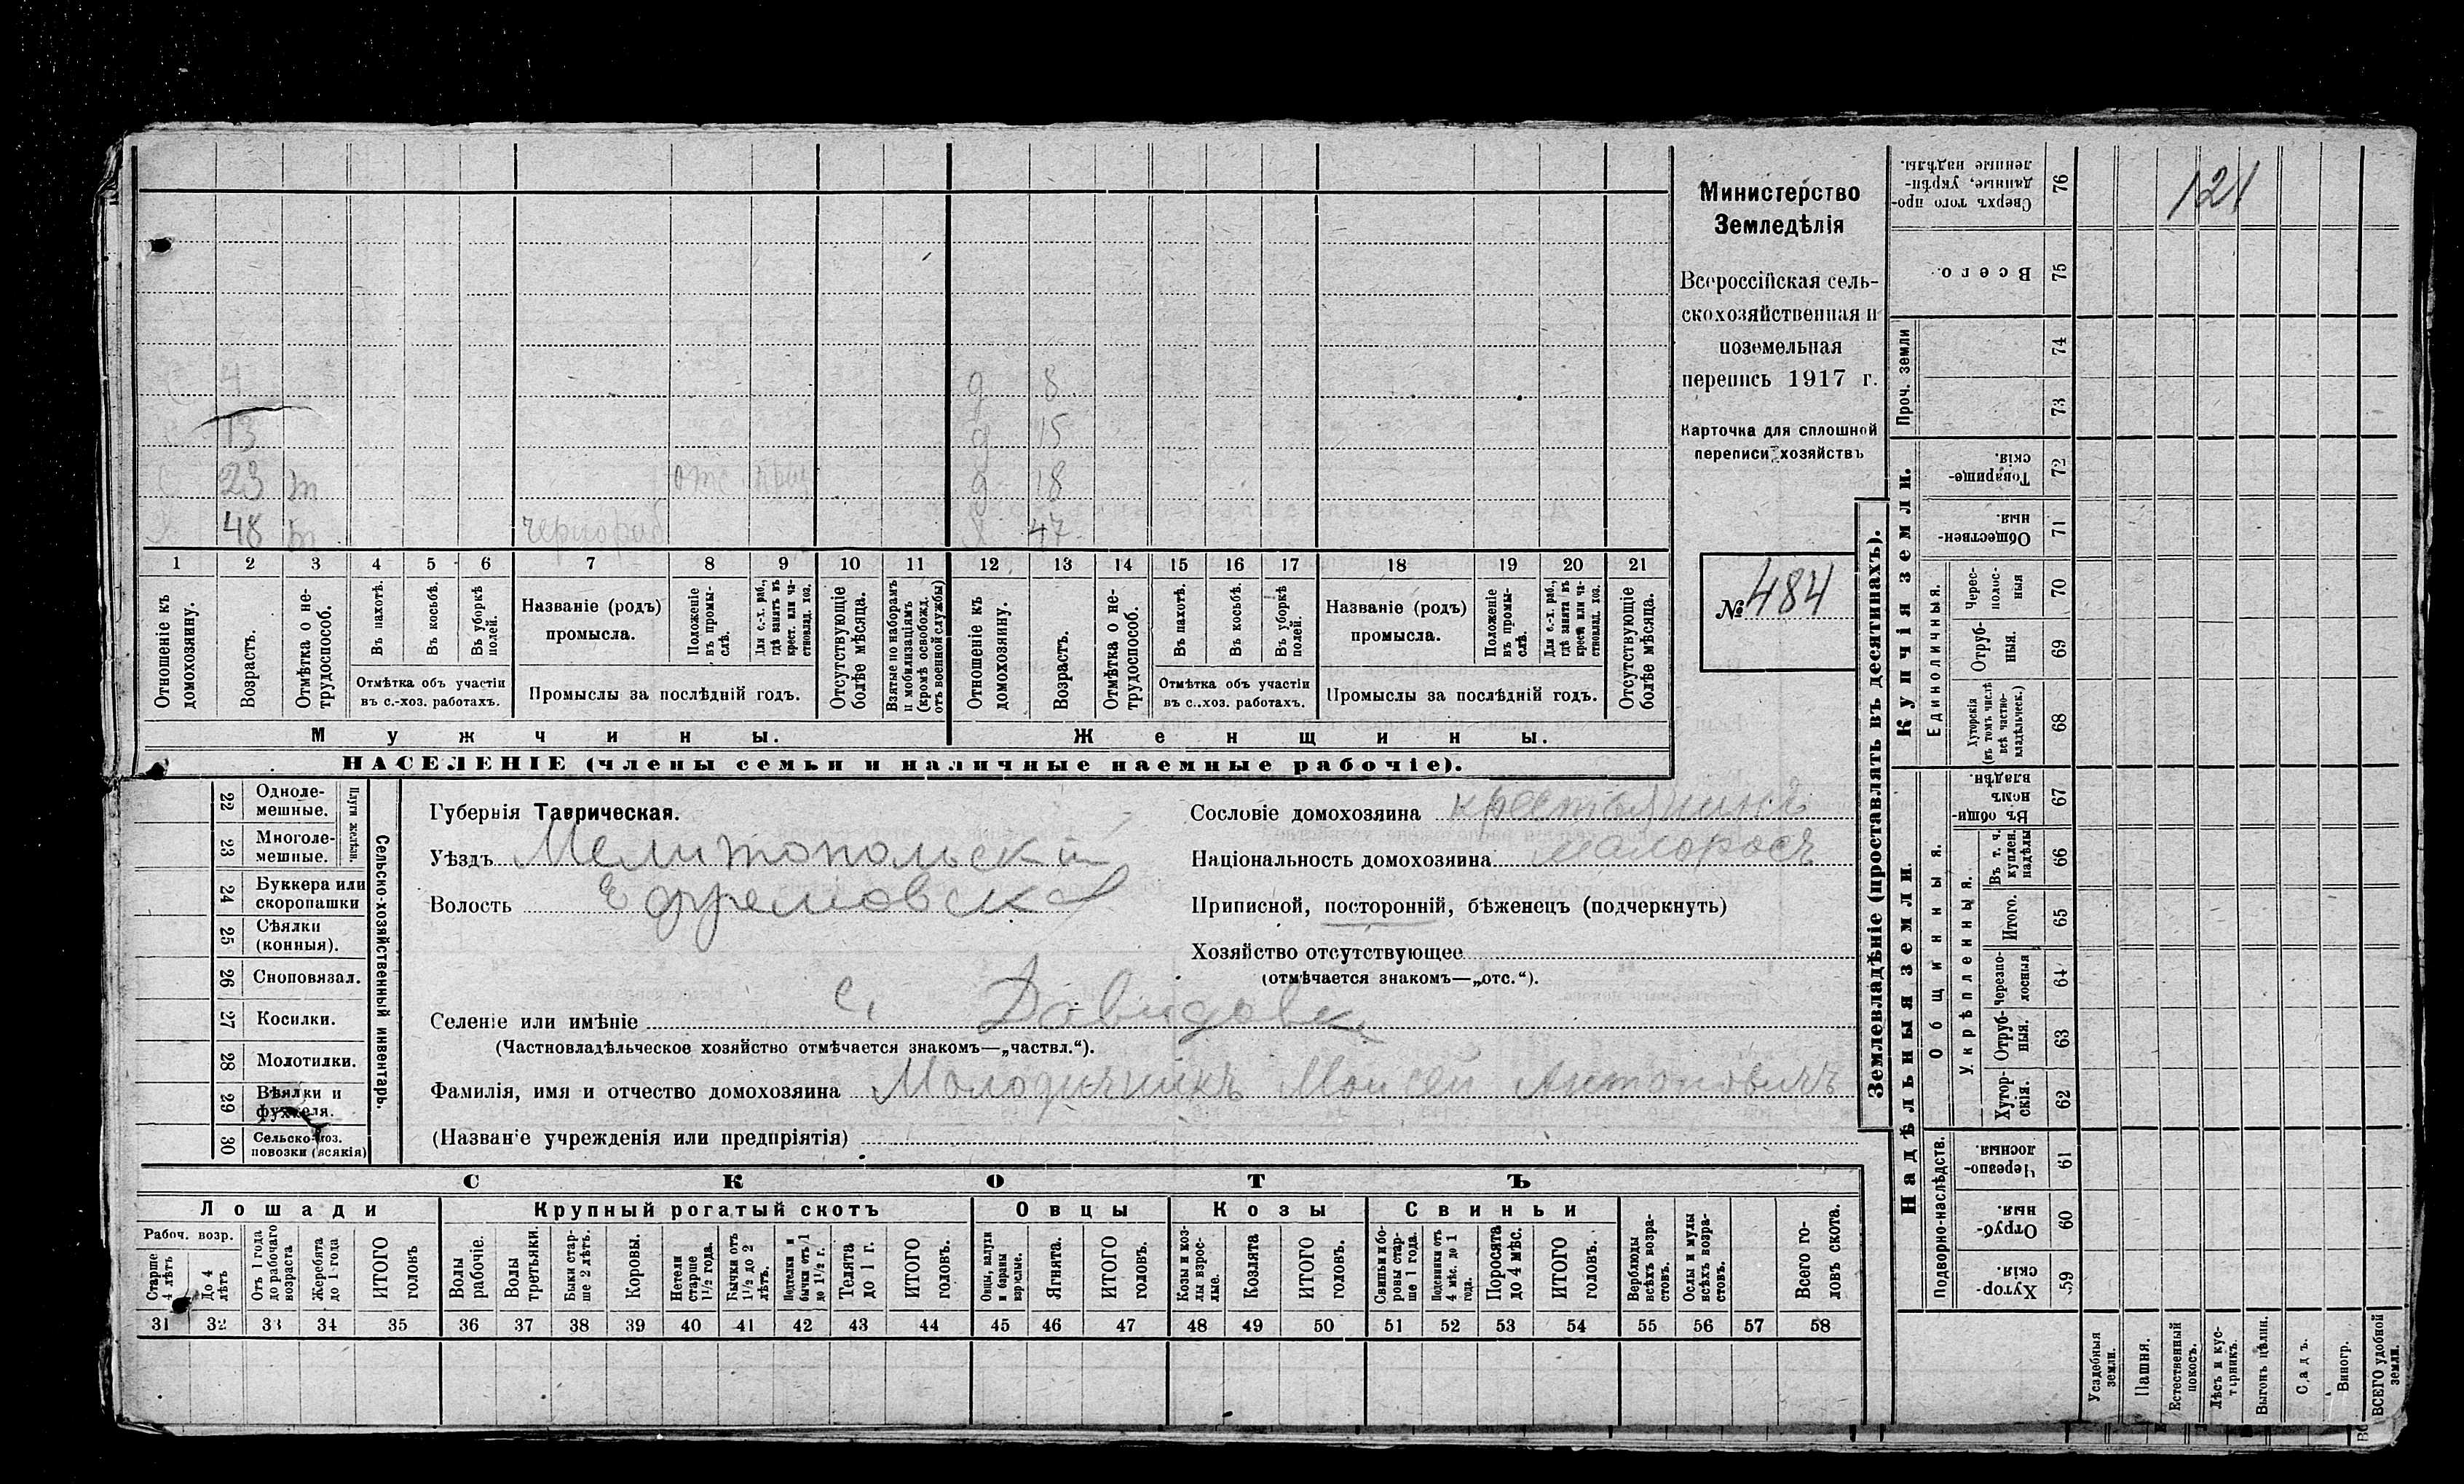 121
Министерство
Земледѣлія
Всероссійская сель-
скохозяйственная и
поземельная
перепись 1917 г.
Карточка для сплошной
переписи хозяйствъ
№ 484
4 д 8
13 д 15
23 отс д 18
48 чернораб 47
1 2 3 4 5 6 7 8 9 10 11 12 13 14 15 16 17 18 19 20 21
Отношеніе къ домохозяину.
Возрастъ.
Отмѣтка о не-трудоспособ.
Въ пахотѣ.
Въ косьбѣ.
Въ уборкѣ полей.
Отмѣтка объ участіи
въ с.-хоз. работахъ.
Названіе (родъ)
промысла.
Положеніе въ промы-слѣ.
Для с.-х. раб., гдѣ занятъ въ крест. или ча-стновлад. хоз.
Промыслы за послѣдній годъ.
Отсутствующіе болѣе мѣсяца.
Взятые по наборамъ и мобилизаціямъ (кромѣ освобожд. отъ военной службы)
Отношеніе къ домохозяину.
Возрастъ.
Отмѣтка о не-трудоспособ.
Въ пахотѣ.
Въ косьбѣ.
Въ уборкѣ полей.
Отмѣтка объ участіи
въ с.-хоз. работахъ.
Названіе (родъ)
промысла.
Положеніе въ промы-слѣ.
Для с.-х. раб., гдѣ занята въ крест. или ча-стновлад. хоз.
Промыслы за послѣдній годъ.
Отсутствующіе болѣе мѣсяца.
Мужчины. Женщины.
НАСЕЛЕНІЕ (члены семьи и наличные наемные рабочіе).
Сельско-хозяйственный инвентарь.
Плуги желѣзн.
22 Одноле-мешные.
23 Многоле-мешные.
24 Буккера или скоропашки
25 Сѣялки (конныя).
26 Сноповязал.
27 Косилки.
28 Молотилки.
29 Вѣялки и фухтеля.
30 Сельско-хоз. повозки (всякія)
Губернія Таврическая.
Уѣздъ Мелитопольскій
Волость Ефремовская
Сословіе домохозяина крестьянинъ
Національность домохозяина малоросъ
Приписной, посторонній, бѣженецъ (подчеркнуть)
Хозяйство отсутствующее
(отмѣчается знакомъ—„отс.“).
Селеніе или имѣніе с. Давидовка
(Частновладѣльческое хозяйство отмѣчается знакомъ—„частвл.“).
Фамилія, имя и отчество домохозяина Моисей Антоновичъ
(Названіе учрежденія или предпріятія)
СКОТЪ
Лошади Крупный рогатый скотъ Овцы Козы Свиньи
Рабоч. возр.
Старше 4 лѣтъ
До 4 лѣтъ
Отъ 1 года до рабочаго возраста
Жеребята до 1 года
ИТОГО головъ
Волы рабочіе.
Волы третьяки.
Быки стар-ше 2 лѣтъ.
Коровы.
Нетели старше 1½ года.
Бычки отъ 1½ до 2 лѣтъ.
Подтелки и бычки отъ 1 до 1½ г.
Телята до 1 г.
ИТОГО головъ.
Овцы, валухи и бараны взрослые.
Ягнята.
ИТОГО головъ.
Козы и коз-лы взрос-лые.
Козлята
ИТОГО головъ.
Свиньи и бо-ровы стар-ше 1 года.
Подсвинки отъ 4 мѣс. до 1 года.
Поросята до 4 мѣс.
ИТОГО головъ.
Верблюды всѣхъ возра-стовъ.
Ослы и мулы всѣхъ возра-стовъ.
Всего го-ловъ скота.
31 32 33 34 35 36 37 38 39 40 41 42 43 44 45 46 47 48 49 50 51 52 53 54 55 56 57 58
Землевладѣніе (проставлять въ десятинахъ).
Надѣльныя земли. Купчія земли.
Подворно-наслѣдств.
Общинныя.
Укрѣпленныя.
Единоличныя.
Проч. земли
Хутор-скія. 59
Отруб-ныя. 60
Черезпо-лосныя. 61
Хутор-скія. 62
Отруб-ныя. 63
Черезпо-лосныя 64
Итого. 65
Въ т. ч. куплен. надѣлы 66
Въ общин-номъ владѣн. 67
Хуторскія (въ томъ числѣ всѣ частно-владѣльческ.) 68
Отруб-ныя. 69
Черес-полос-ныя 70
Обществен-ныя. 71
Товарище-скія. 72
73
74
Всего. 75
Сверхъ того про-данные, укрѣп-ленные надѣлы. 76
Усадебныя земли.
Пашня.
Естественный покосъ.
Лѣсъ и кус-тарникъ.
Выгонъ цѣлин.
Садъ.
Виногр.
ВСЕГО удобной земли.